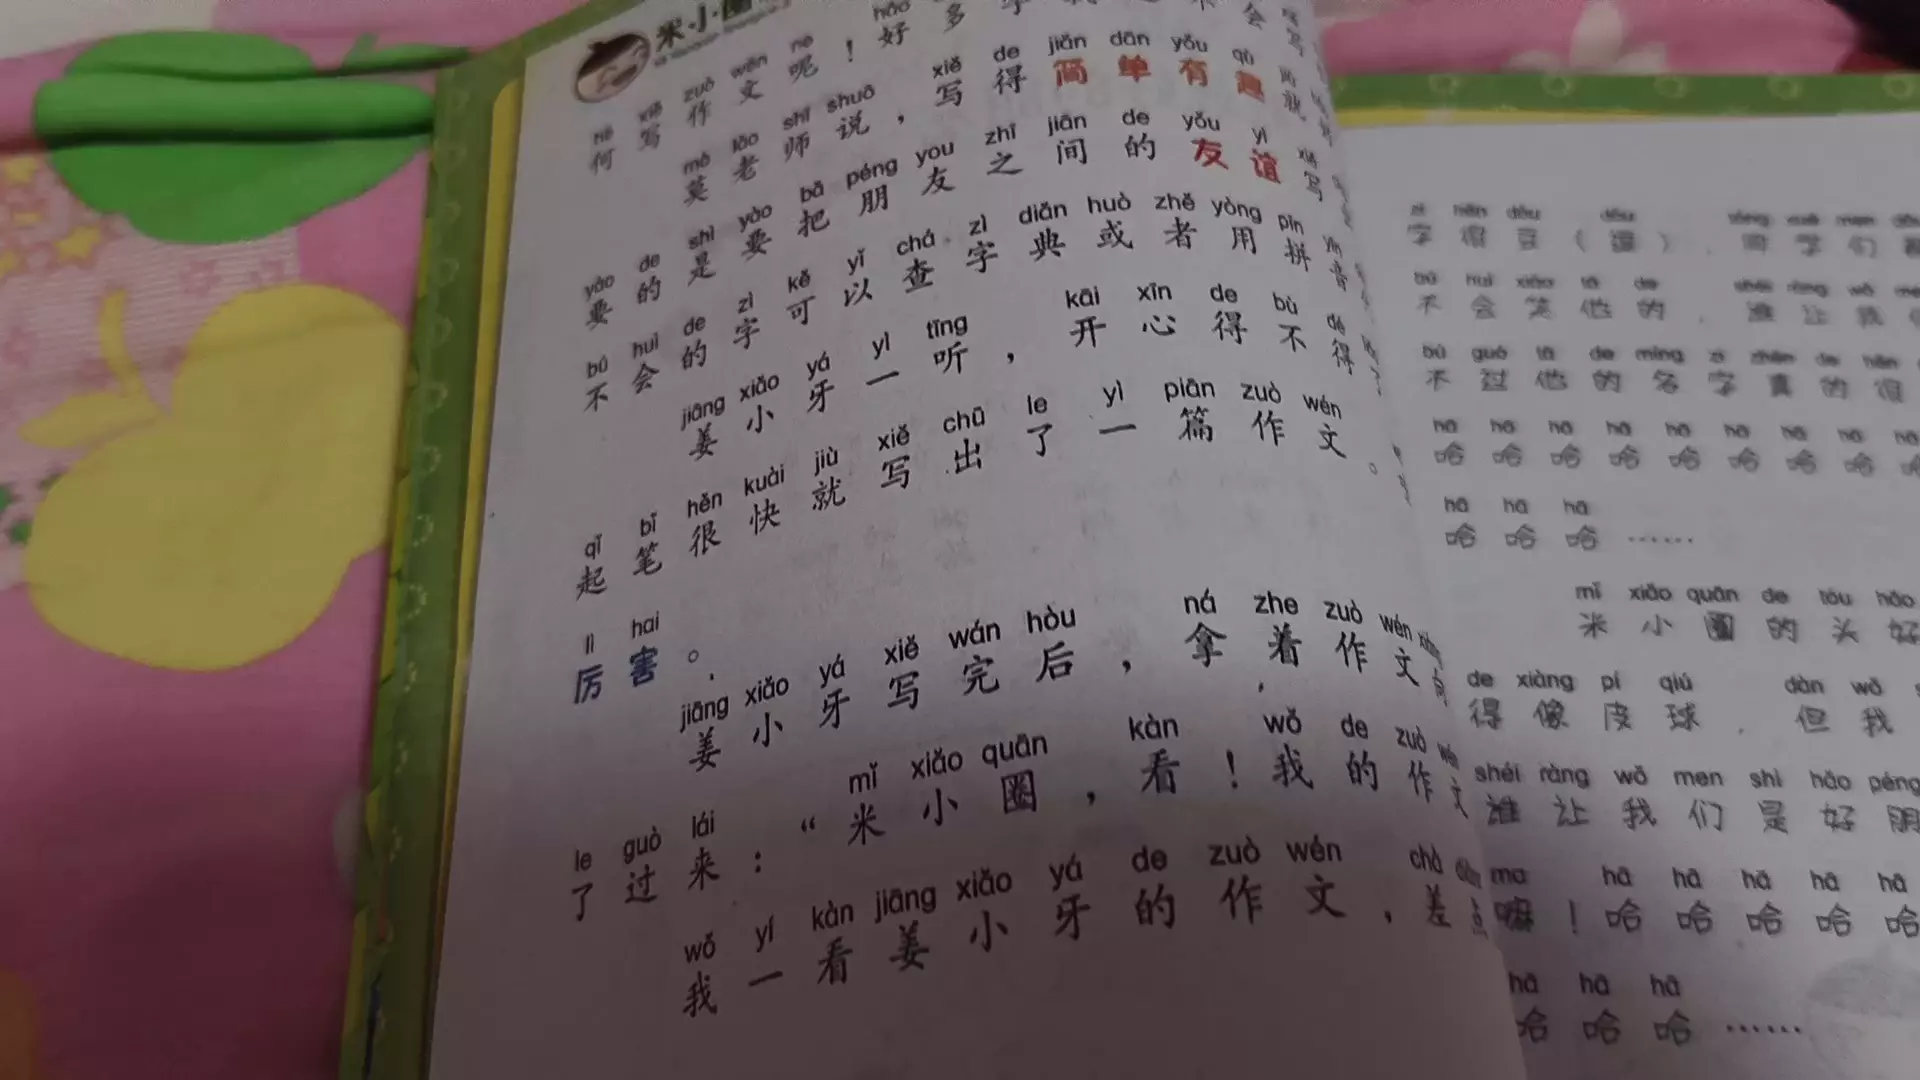 米小圈
hé xiě zuò wén ne hǎo
何写作文呢！好多字
mò lǎo shī shuō xiě de jiǎn dān yǒu qù
莫老师说，写得简单有趣
yào de shì yào bǎ péng you zhī jiān de yǒu yì xiě
要的是要把朋友之间的友谊写
bú huì de zì kě yǐ chá zì diǎn huò zhě yòng pīn yīn
不会的字可以查字典或者用拼音
jiāng xiǎo yá yì tīng kāi xīn de bù dé
姜小牙一听，开心得不得
qǐ bǐ hěn kuài jiù xiě chū le yì piān zuò wén
起笔很快就写出了一篇作文。
lì hai
厉害。
jiāng xiǎo yá xiě wán hòu ná zhe zuò wén xiàng
姜小牙写完后，拿着作文向
le guò lái mǐ xiǎo quān kàn wǒ de zuò wén
了过来：“米小圈，看！我的作文
wǒ yí kàn jiāng xiǎo yá de zuò wén chà diǎn
我一看姜小牙的作文，差点
字得豆（逗），同学们
bú huì xiào tā de shéi ràng wǒ
不会笑他的，谁让我
bú guò tā de míng zi zhēn de hěn
不过他的名字真的很
hā hā hā hā hā hā hā hā
哈哈哈哈哈哈哈哈
hā hā hā
哈哈哈……
mǐ xiǎo quān de tóu hǎo
米小圈的头好
de xiàng pí qiú dàn wǒ
得像皮球，但我
shéi ràng wǒ men shì hǎo péng
谁让我们是好朋
ma hā hā hā hā hā
嘛！哈哈哈哈哈
hā hā hā
哈哈哈……